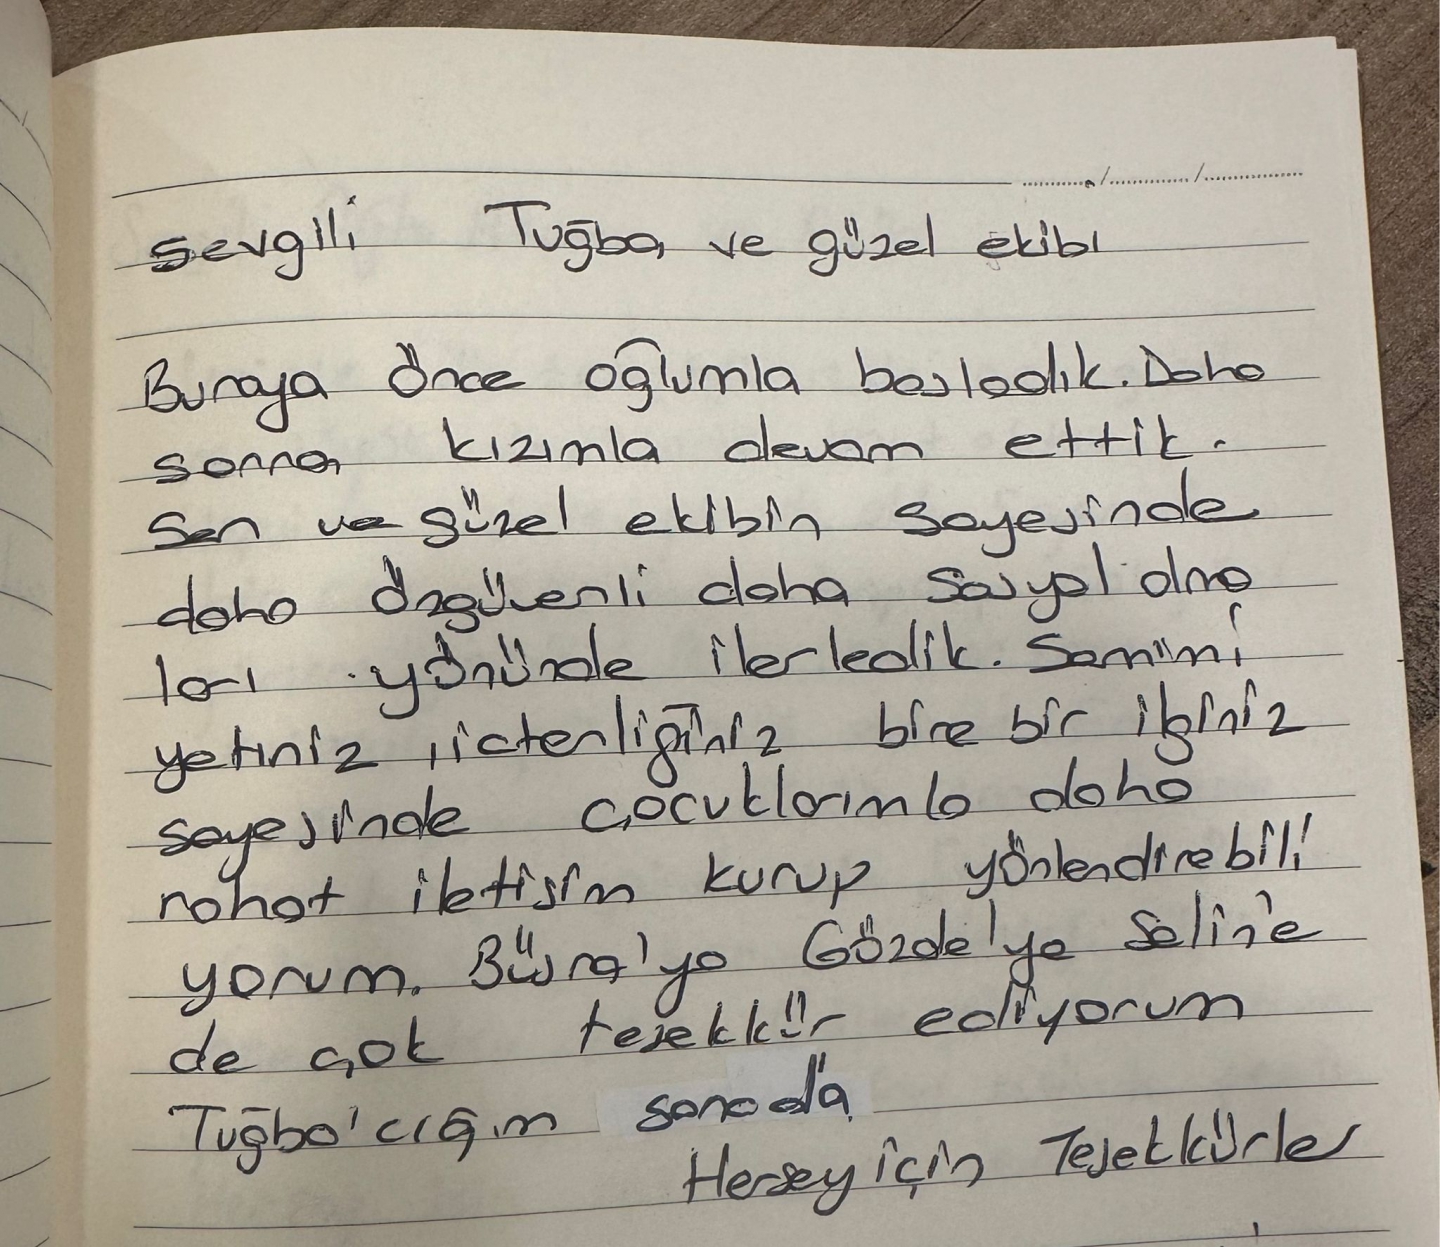 Sevgili Tuğba ve güzel ekibi
Buraya önce oğlumla başladık. Daha
sonra kızımla devam ettik.
Sen ve güzel ekibin sayesinde
daha özgüvenli daha sosyal olma
ları yönünde ilerledik. Samimi
yetiniz, içtenliğiniz bire bir ilginiz
sayesinde çocuklarımla daha
rahat iletişim kurup yönlendirebili
yorum. Büşra'ya Gözde'ye Selin'e
de çok teşekkür ediyorum
Tuğba'cığım sana da
Herşey için Teşekkürler